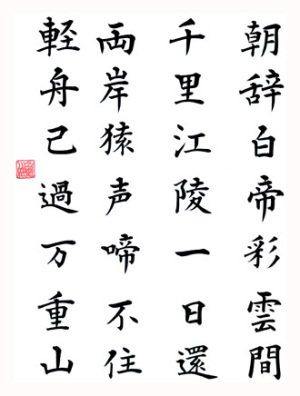 朝辞白帝彩雲間
千里江陵一日還
両岸猿声啼不住
軽舟己過万重山